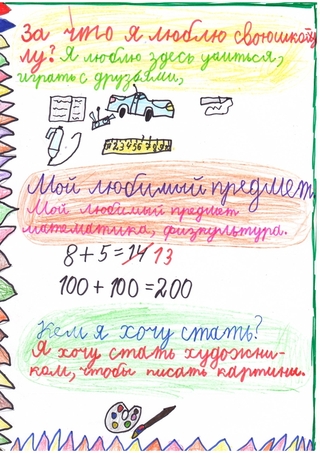 За что я люблю свою школу
лу? Я люблю здесь учиться,
играть с друзьями,
1 2 3 4 5 6 7 8 9
Мой любимый предмет
Мой любимый предмет
математика, физкультура.
8 + 5 = 14 13
100 + 100 = 200
Кем я хочу стать?
Я хочу стать художни-
ком, чтобы писать картины.